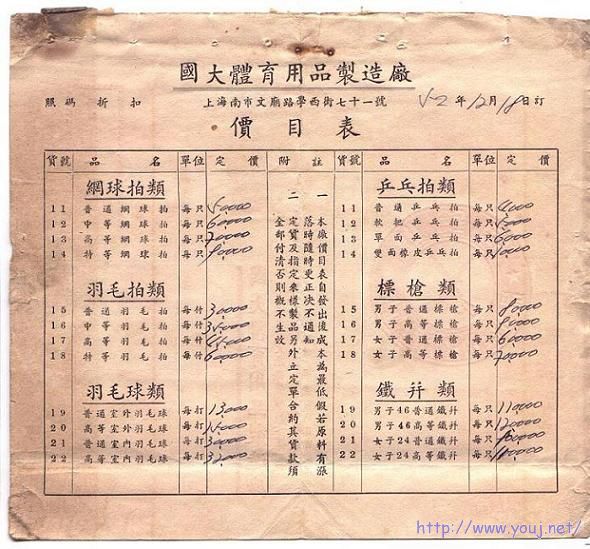 國大體育用品製造廠
照碼 折扣
上海南市文廟路學西街七十一號
52年12月18日訂
價目表
貨號 品名 單位 定價
網球拍類
11 普通網球拍 每只 50000
12 中等網球拍 每只 60000
13 高等網球拍 每只 70000
14 特等網球拍 每只
羽毛拍類
15 普通羽毛拍 每付 30000
16 中等羽毛拍 每付 35000
17 高等羽毛拍 每付
18 特等羽毛拍 每付 60000
羽毛球類
19 普通室外羽毛球 每打 13000
20 高等室外羽毛球 每打 15000
21 普通室內羽毛球 每打 30000
22 高等室內羽毛球 每打
附註
一 本廠價目表自發出後成本為最低假若原料有漲
落時隨時更正決不通知
二 定貨及指定來樣製品另外立定單合約其貨款須
全部付清否則概不生效
貨號 品名 單位 定價
乒乓拍類
11 普通乒乓拍 每只 4000
12 軟耙乒乓拍 每只 5000
13 單面乒乓拍 每只 6000
14 雙面橡皮乒乓拍 每只
標槍類
15 男子普通標槍 每只 80000
16 男子高等標槍 每只
17 女子普通標槍 每只 60000
18 女子高等標槍 每只 70000
鐵餅類
19 男子46普通鐵餅 每只 110000
20 男子46高等鐵餅 每只 120000
21 女子24普通鐵餅 每只 100000
22 女子24高等鐵餅 每只
http://www.youj.net/